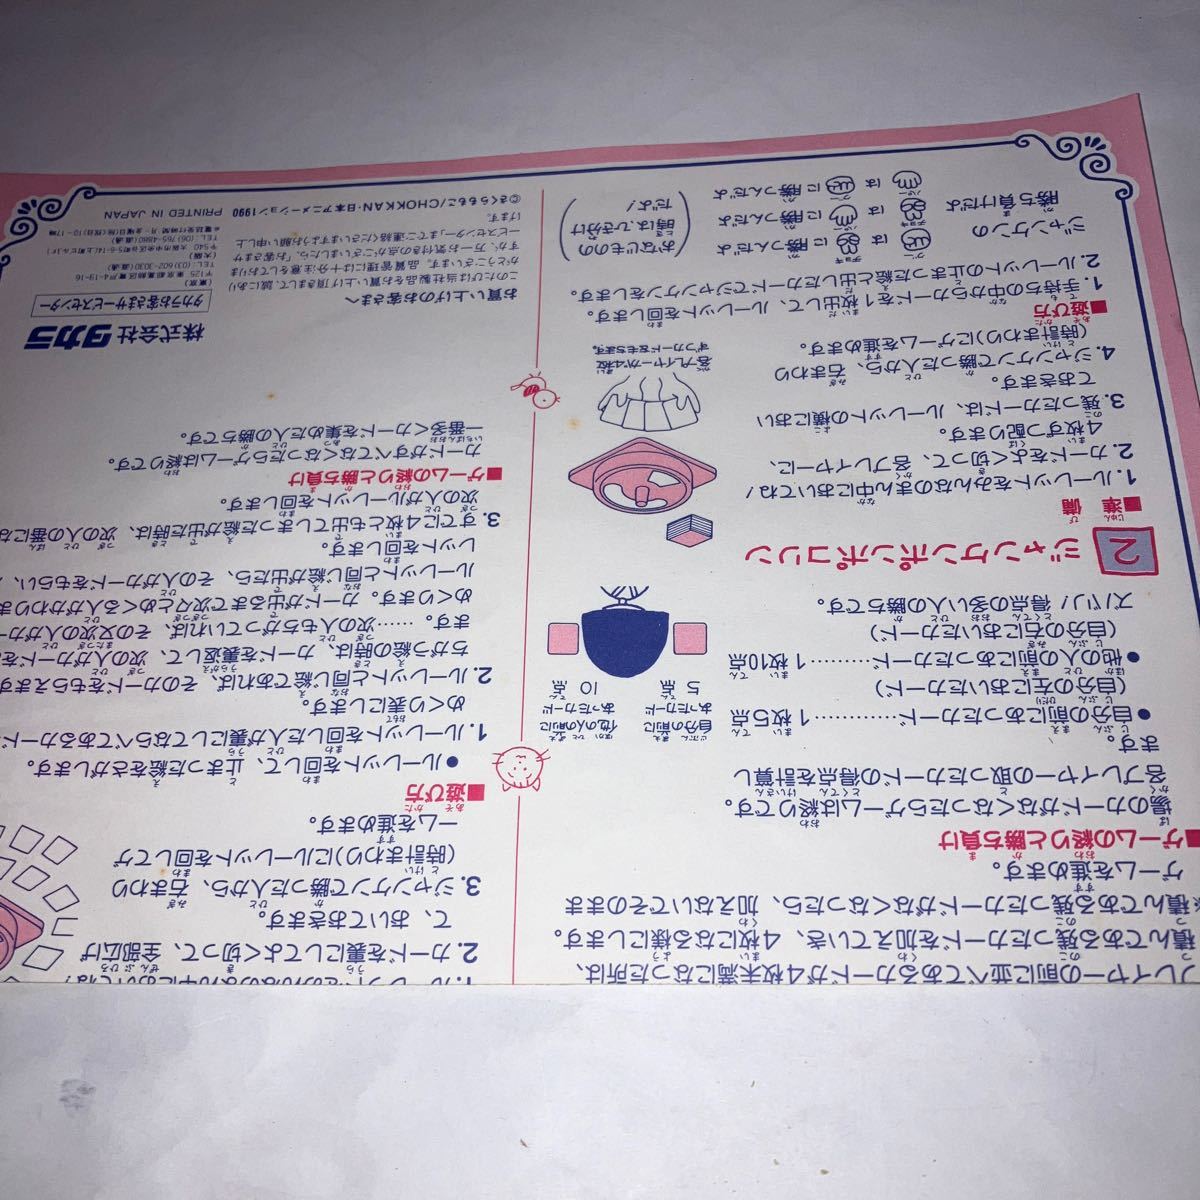 プレイヤーの前に並べてあるカードが4枚未満になった所は、
積んである残ったカードを加えていき、4枚になる様にします。
※積んである残ったカードがなくなったら、加えないでそのまま
ゲームを進めます。
■ゲームの終りと勝ち負け
場のカードがなくなったらゲームは終りです。
各プレイヤーの取ったカードの得点を計算し
ます。
●自分の前にあったカード…………1枚5点
(自分の左においたカード)
●他の人の前にあったカード………1枚10点
(自分の右においたカード)
ズバリ!得点の多い人の勝ちです。
自分の前に
あったカード
5点
他の人の前に
あったカード
10点
2 ジャンケンポンポコリン
■準備
1.ルーレットをみんなのまん中においてね!
2.カードをよく切って、各プレイヤーに、
4枚ずつ配ります。
3.残ったカードは、ルーレットの横におい
ておきます。
4.ジャンケンで勝った人から、右まわり
(時計まわり)にゲームを進めます。
各プレイヤーが4枚
ずつカードをもちます。
■遊び方
1.手持ちの中からカードを1枚出して、ルーレットを回します。
2.ルーレットの止まった絵と出したカードでジャンケンをします。
ジャンケンの
勝ち負けだよ
グー は チョキ に 勝つんだよ
チョキ は パー に 勝つんだよ
パー は グー に 勝つんだよ
(おなじものの
時は、ひき分け
だよ!)
2.カードを裏にしてよく切って、全部広げ
て、おいておきます。
3.ジャンケンで勝った人から、右まわり
(時計まわり)にルーレットを回してゲ
ームを進めます。
■遊び方
●ルーレットを回して、止まった絵をさがします。
1.ルーレットを回した人が裏にしてならべてあるカード
めくり表にします。
2.ルーレットと同じ絵であれば、そのカードをもらえます
ちがう絵の時は、カードを裏返して、次の人がカー
ます。……次の人もちがっていれば、その又次の人がカー
めくります。カードが出るまで次々とめくる人がかわりま
ルーレットと同じ絵が出たら、その人がカードをもらい、
レットを回します。
3.すでに4枚とも出てしまった絵が出た時は、次の人の番にな
次の人がルーレットを回します。
■ゲームの終りと勝ち負け
カードがすべてなくなったらゲームは終りです。
一番多くカードを集めた人の勝ちです。
お買い上げのお客さまへ
このたびは当社製品をお買い上げ頂きまして、誠にあり
がとうございます。品質管理には十分注意をしておりま
すが、万一お気付きの点がございましたら、「お客さまサ
ービスセンター」までご連絡くださいますようお願い申し上
げます。
©さくらももこ/CHOKKAN・日本アニメーション1990
株式会社タカラ
タカラお客さまサービスセンター
(東京)
〒125 東京都葛飾区青戸4-19-16
TEL:(03)602-3030(直通)
(大阪)
TEL:(06)765-4880(直通)
PRINTED IN JAPAN